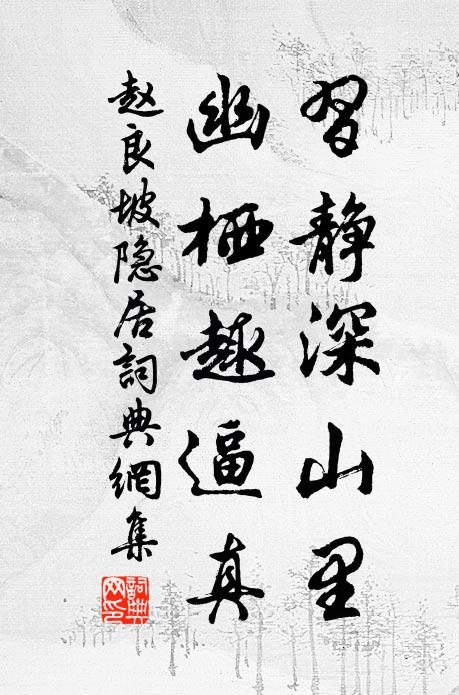 習静深山里
幽栖趣逼真
赵良坡隐居詞典網集
詞典